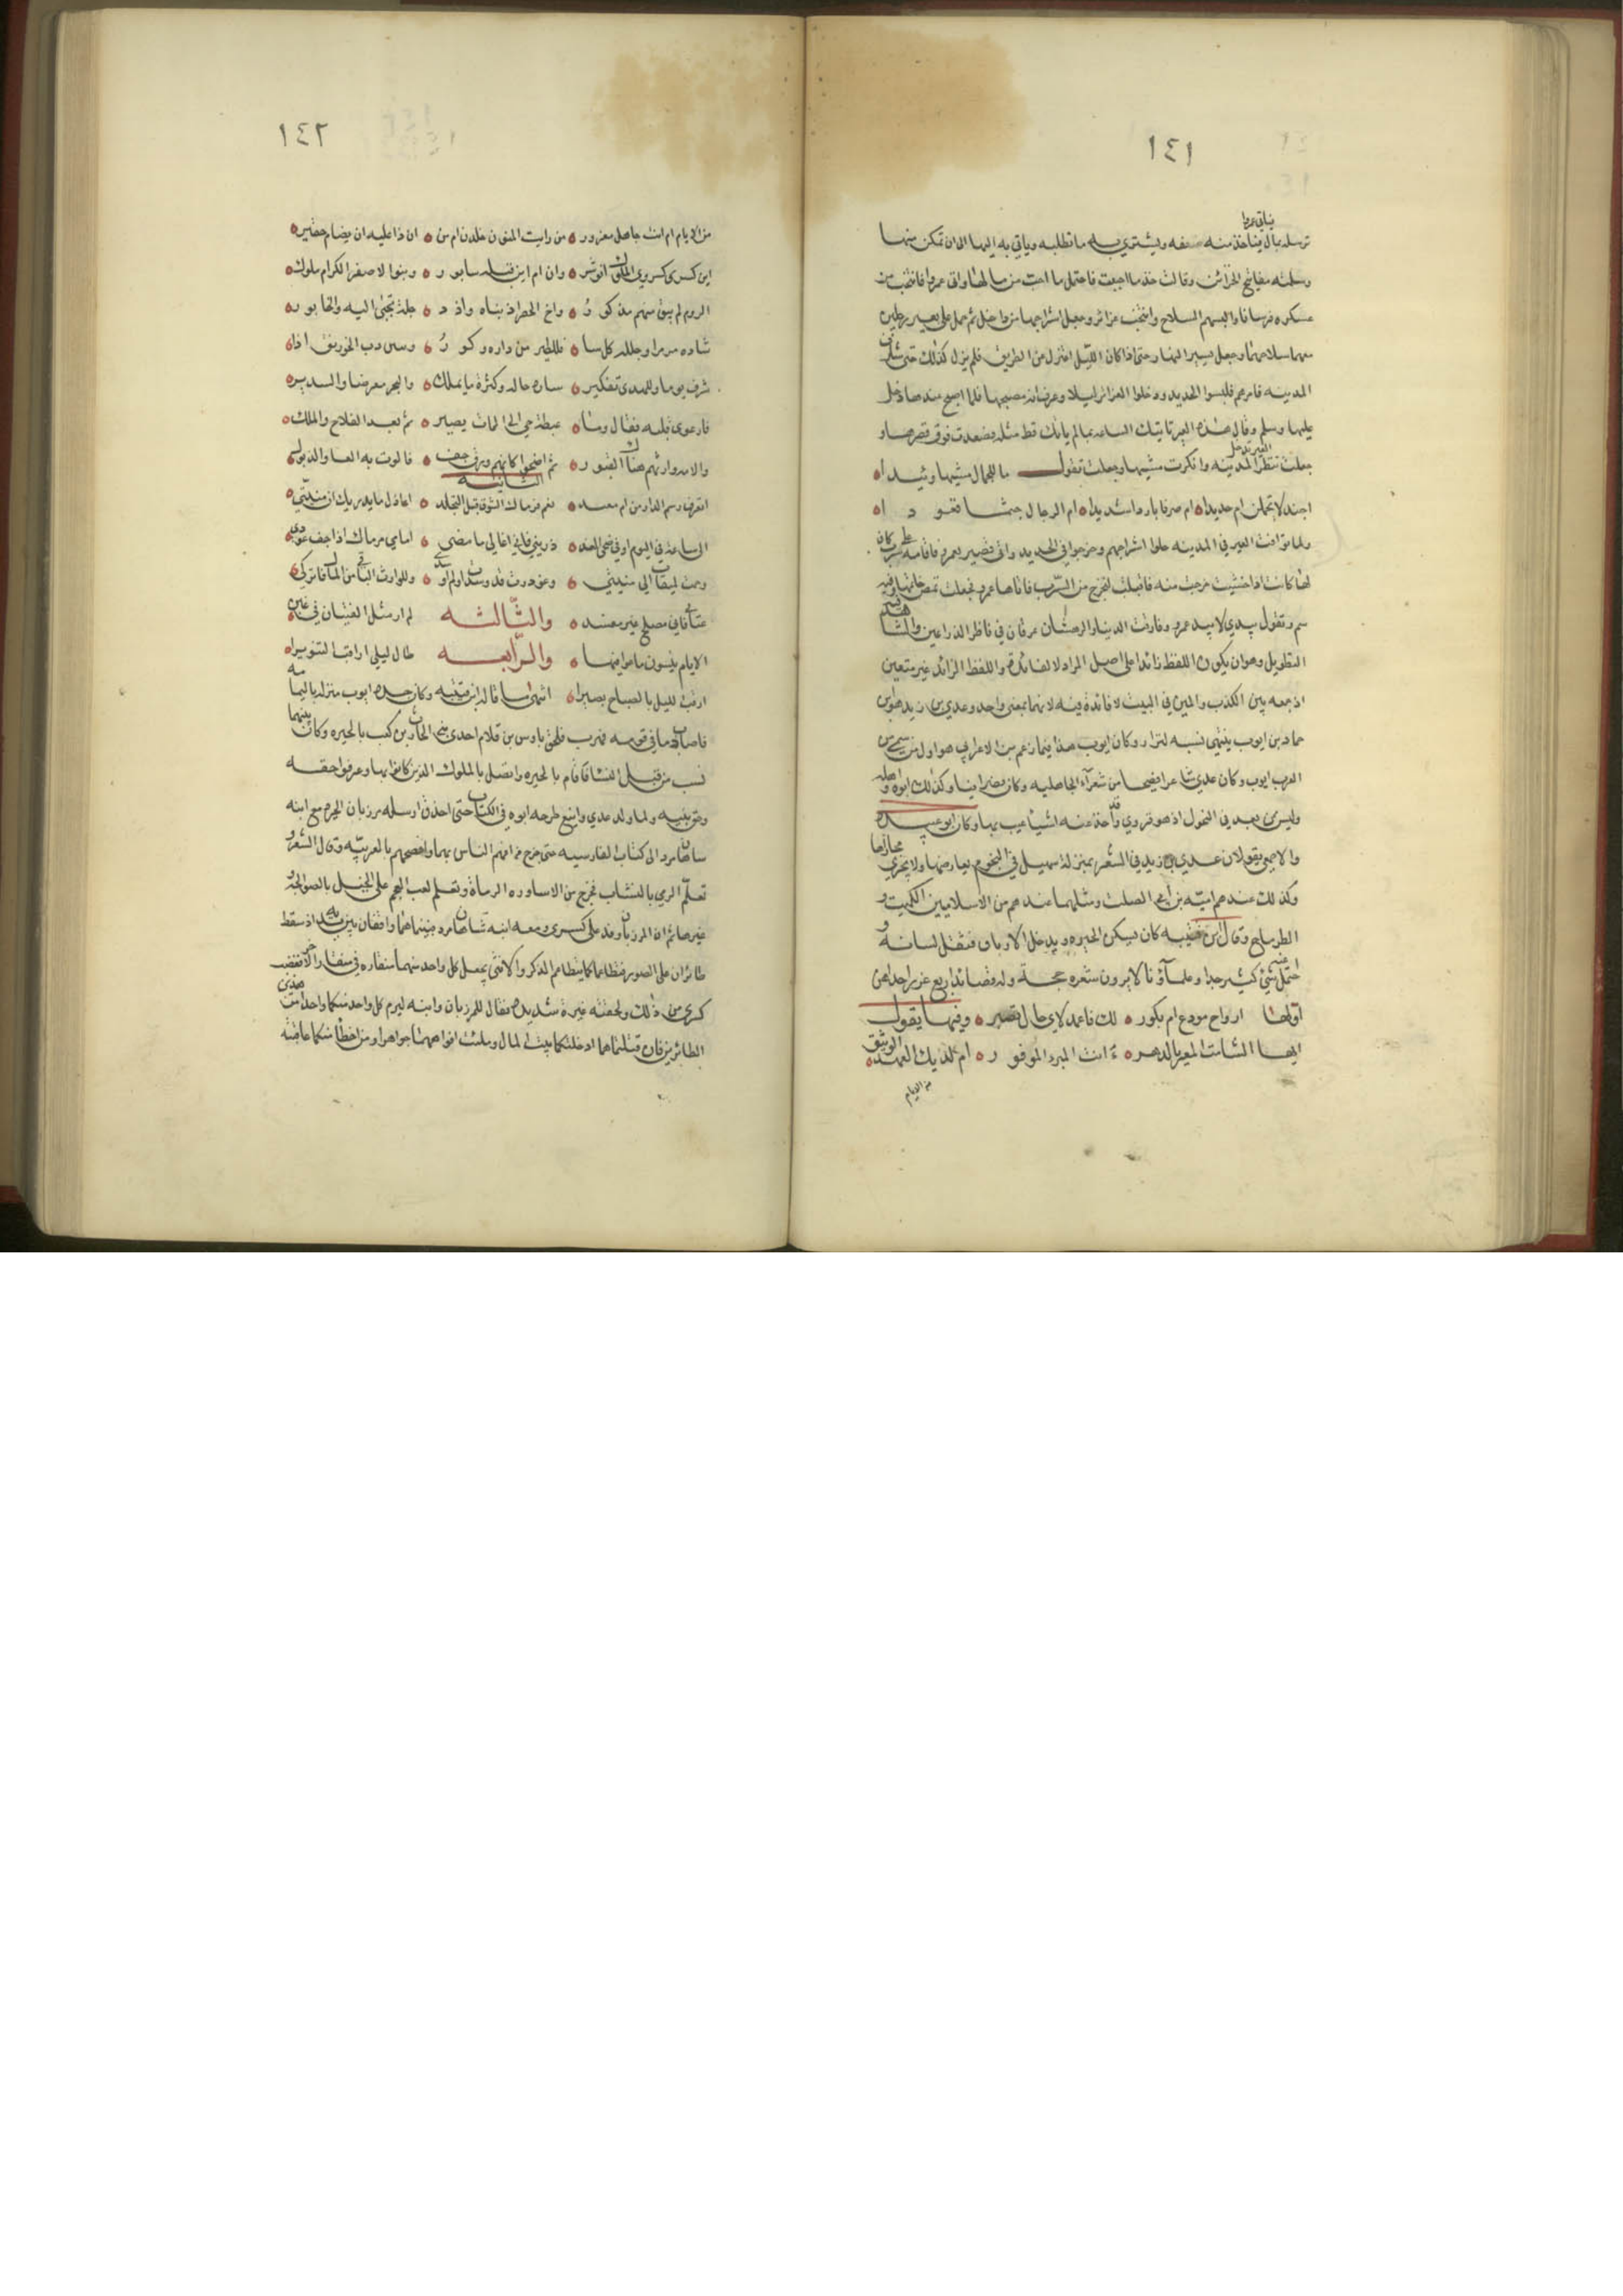 ١٤١
فياتي عمروا
ترسله بمال فياخذ منه ضعفه ويشتري به ما تطلبه وياتي به اليها الى ان تمكن منها
وسلمته مفاتيح الخزائن وقالت خذ ما احببت فاحتمل ما احب من مالها واتى عمروا فانتخب من
عسكره فرسانا والبسهم السلاح واتخذ غرائر وجعل اشراجها من داخل ثم حمل على بعير رجلين
معهما سلاحهما وجعل يسير النهار حتى اذا كان الليل اعتزل من الطريق فلم يزل كذلك حتى شارف
المدينه فامرهم فلبسوا الحديد ودخلوا الغرائر ليلا وعرف انه مصبحها فلما اصبح عندها دخل
عليها وسلم وقال هذه العير تاتيك الساعه بما لم ياتك قط مثله فصعدت فوق قصرها و
جعلت تنظر العير تدخل المدينه وانكرت مشيها وجعلت تقول ما للجمال مشيها وئيدا
اجندلا يحملن ام حديدا ام صرفانا باردا شديدا ام الرجال جثما قعودا
ولما توافت العير في المدينه حلوا اشراجهم وخرجوا في الحديد واتى قصير بعمرو فاقامه على سرب كان
لها كانت اذا خشيت خرجت منه فاقبلت لتخرج من السرب فاتاها عمرو فجعلت تمص خاتمها وفيه
سم وتقول بيدي لا بيد عمرو وفارقت الدنيا والرهشان عرقان في ناظر الذراعين والشاهد فيه
التطويل وهو ان يكون اللفظ زائدا على اصل المراد لا لفائدة واللفظ الزائد غير متعين
اذ جمعه بين الكذب والمين في البيت لا فائدة فيه لانهما بمعنى واحد وعدي بن زيد هو ابن
حماد بن ايوب ينتهي نسبه لنزار وكان ايوب هذا فيما زعم بن الاعرابي هو اول من سمي من
العرب ايوب وكان عدي شاعرا فصيحا من شعرآء الجاهليه وكان نصرانيا وكذلك ابوه واهله
وليس من يعد في الفحول اذ هو قروي وقد اخذ عنه اشيآ عيب بها وكان ابو عبيده
والاصمعي يقولان عدي بن زيد في الشعر بمنزلة سهيل في النجوم يعارضها ولا يجري مجاريها
وكذلك عندهم اميّه بن ابي الصلت ومثلهما عندهم من الاسلاميين الكميت و
الطرماح وقال ابن قتيبه كان يسكن الحيره ويدخل الارياف فثقل لسانه و
احتمل عنه شئ كثير جدا وعلمآؤنا لا يرون شعره حجة وله قصائد اربع غرر احداهن
اولها ارواح مودع ام بكور لك فاعمد لاي حال تصير وفيها يقول
ايها الشامت المعير بالدهر ءانت المبرء الموفور ام لديك العهد الوثيق
من الايام
١٤٢
من الايام ام انت جاهل مغرور من رايت المنون خلدن ام من ان ذا عليه ان يضام خفير
اين كسرى كسرى الملوك انوشر وان ام اين قبله سابور وبنوا الاصفر الكرام ملوك
الروم لم يبق منهم مذكور واخ الحضر اذ بناه واذ د جلة تجبى اليه والخابور
شاده مرمرا وجلله كلسا فللطير من داره وكور وسى رب الخورنق اذا
شرف يوما وللهدى تفكير ساره حاله وكثرة ما يملك والبحر معرضا والسدير
فارعوى قلبه فقال وما غبطة حي الى الممات يصير ثم بعد الفلاح والملك
والامه وارتهم هناك القبور ثم اضحوا كانهم ورق جف فالوت به الصبا والدبور
الثانيه
اتعرف رسم الدار من ام معبد نعم فرماك الشوق قبل التجلد اعاذل ما يدريك ان منيتي
الى ساعة في اليوم او في ضحى الغد ذريني فاني انما لي ما مضى امامي من مالي اذا خف عودي
وحمت لميقات الي منيتي وغودرت قد وسدت او لم اوسد وللوارث الباقي من المال فاتركي
عتابي فاني مصلح غير مفسد والثّالثه لم ار مثل الفتيان في غبن
الايام ينسون ما عواقبها والرّابعه طال ليلي اراقب التنويرا
ارقب الليل بالصباح بصيرا انتهى ما قاله ابن قتيبه وكان جده ايوب منزله باليمامه
فاصاب دما في قومه فهرب فلحق باوس بن قلام احد بني الحارث بن كعب بالحيره وكان بينهما
نسب من قبل النسا فاقام بالحيره واتصل بالملوك الذين كانوا بها وعرفوا حقه
وحق بنيه ولما ولد عدي وايفع طرحه ابوه في الكتاب حتى احذق ارسله مرزبان الحره مع ابنه
شاهان مرد الى كتاب الفارسيه حتى خرج من افهم الناس بها وافصحهم بالعربيّه وقال الشعر و
تعلّم الرمي بالنشاب فخرج من الاساوره الرماة وتعلم لعب العجم على الخيل بالصوالجة و
غيرها ثم ان المرزبان وفد على كسرى ومعه ابنه شاهان مرد فبينما هما واقفان بين يديه اذ سقط
طائران على السور فتطاعما كما يتطاعم الذكر والانثى يجعل كل واحد منهما منقاره في منقار الاخر فغضب
كسرى من ذلك ولحقته غيرة شديده فقال للمرزبان وابنه ليرم كل واحد منكما واحدا من هذين
الطائرين فان قتلتماهما ادخلتكما بيت المال وملئت افواهكما جواهرا ومن اخطأ منكما عاقبته